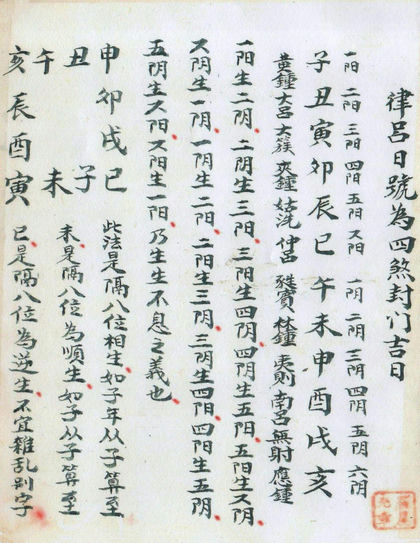 律吕日號為四煞封门吉日
一阳 二阳 三阳 四阳 五阳 六阳 一阴 二阴 三阴 四阴 五阴 六阴
子丑寅卯辰巳午未申酉戌亥
黄鍾 大吕 太簇 夾鍾 姑洗 仲吕 蕤賓 林鍾 夷則 南吕 無射 應鍾
一阳生二阴 二阴生三阳 三阳生四阴 四阴生五阳 五阳生六阴
六阴生一阴 一阴生二阳 二阳生三阴 三阴生四阳 四阳生五阴
五阴生六阳 六阳生一阳 乃生生不息之義也
申卯戌巳 此法是隔八位相生如子年从子算至
丑 子
未是隔八位為順生如子从子算至
午 未
亥辰酉寅 巳是隔八位為逆生不宜雜乱别字